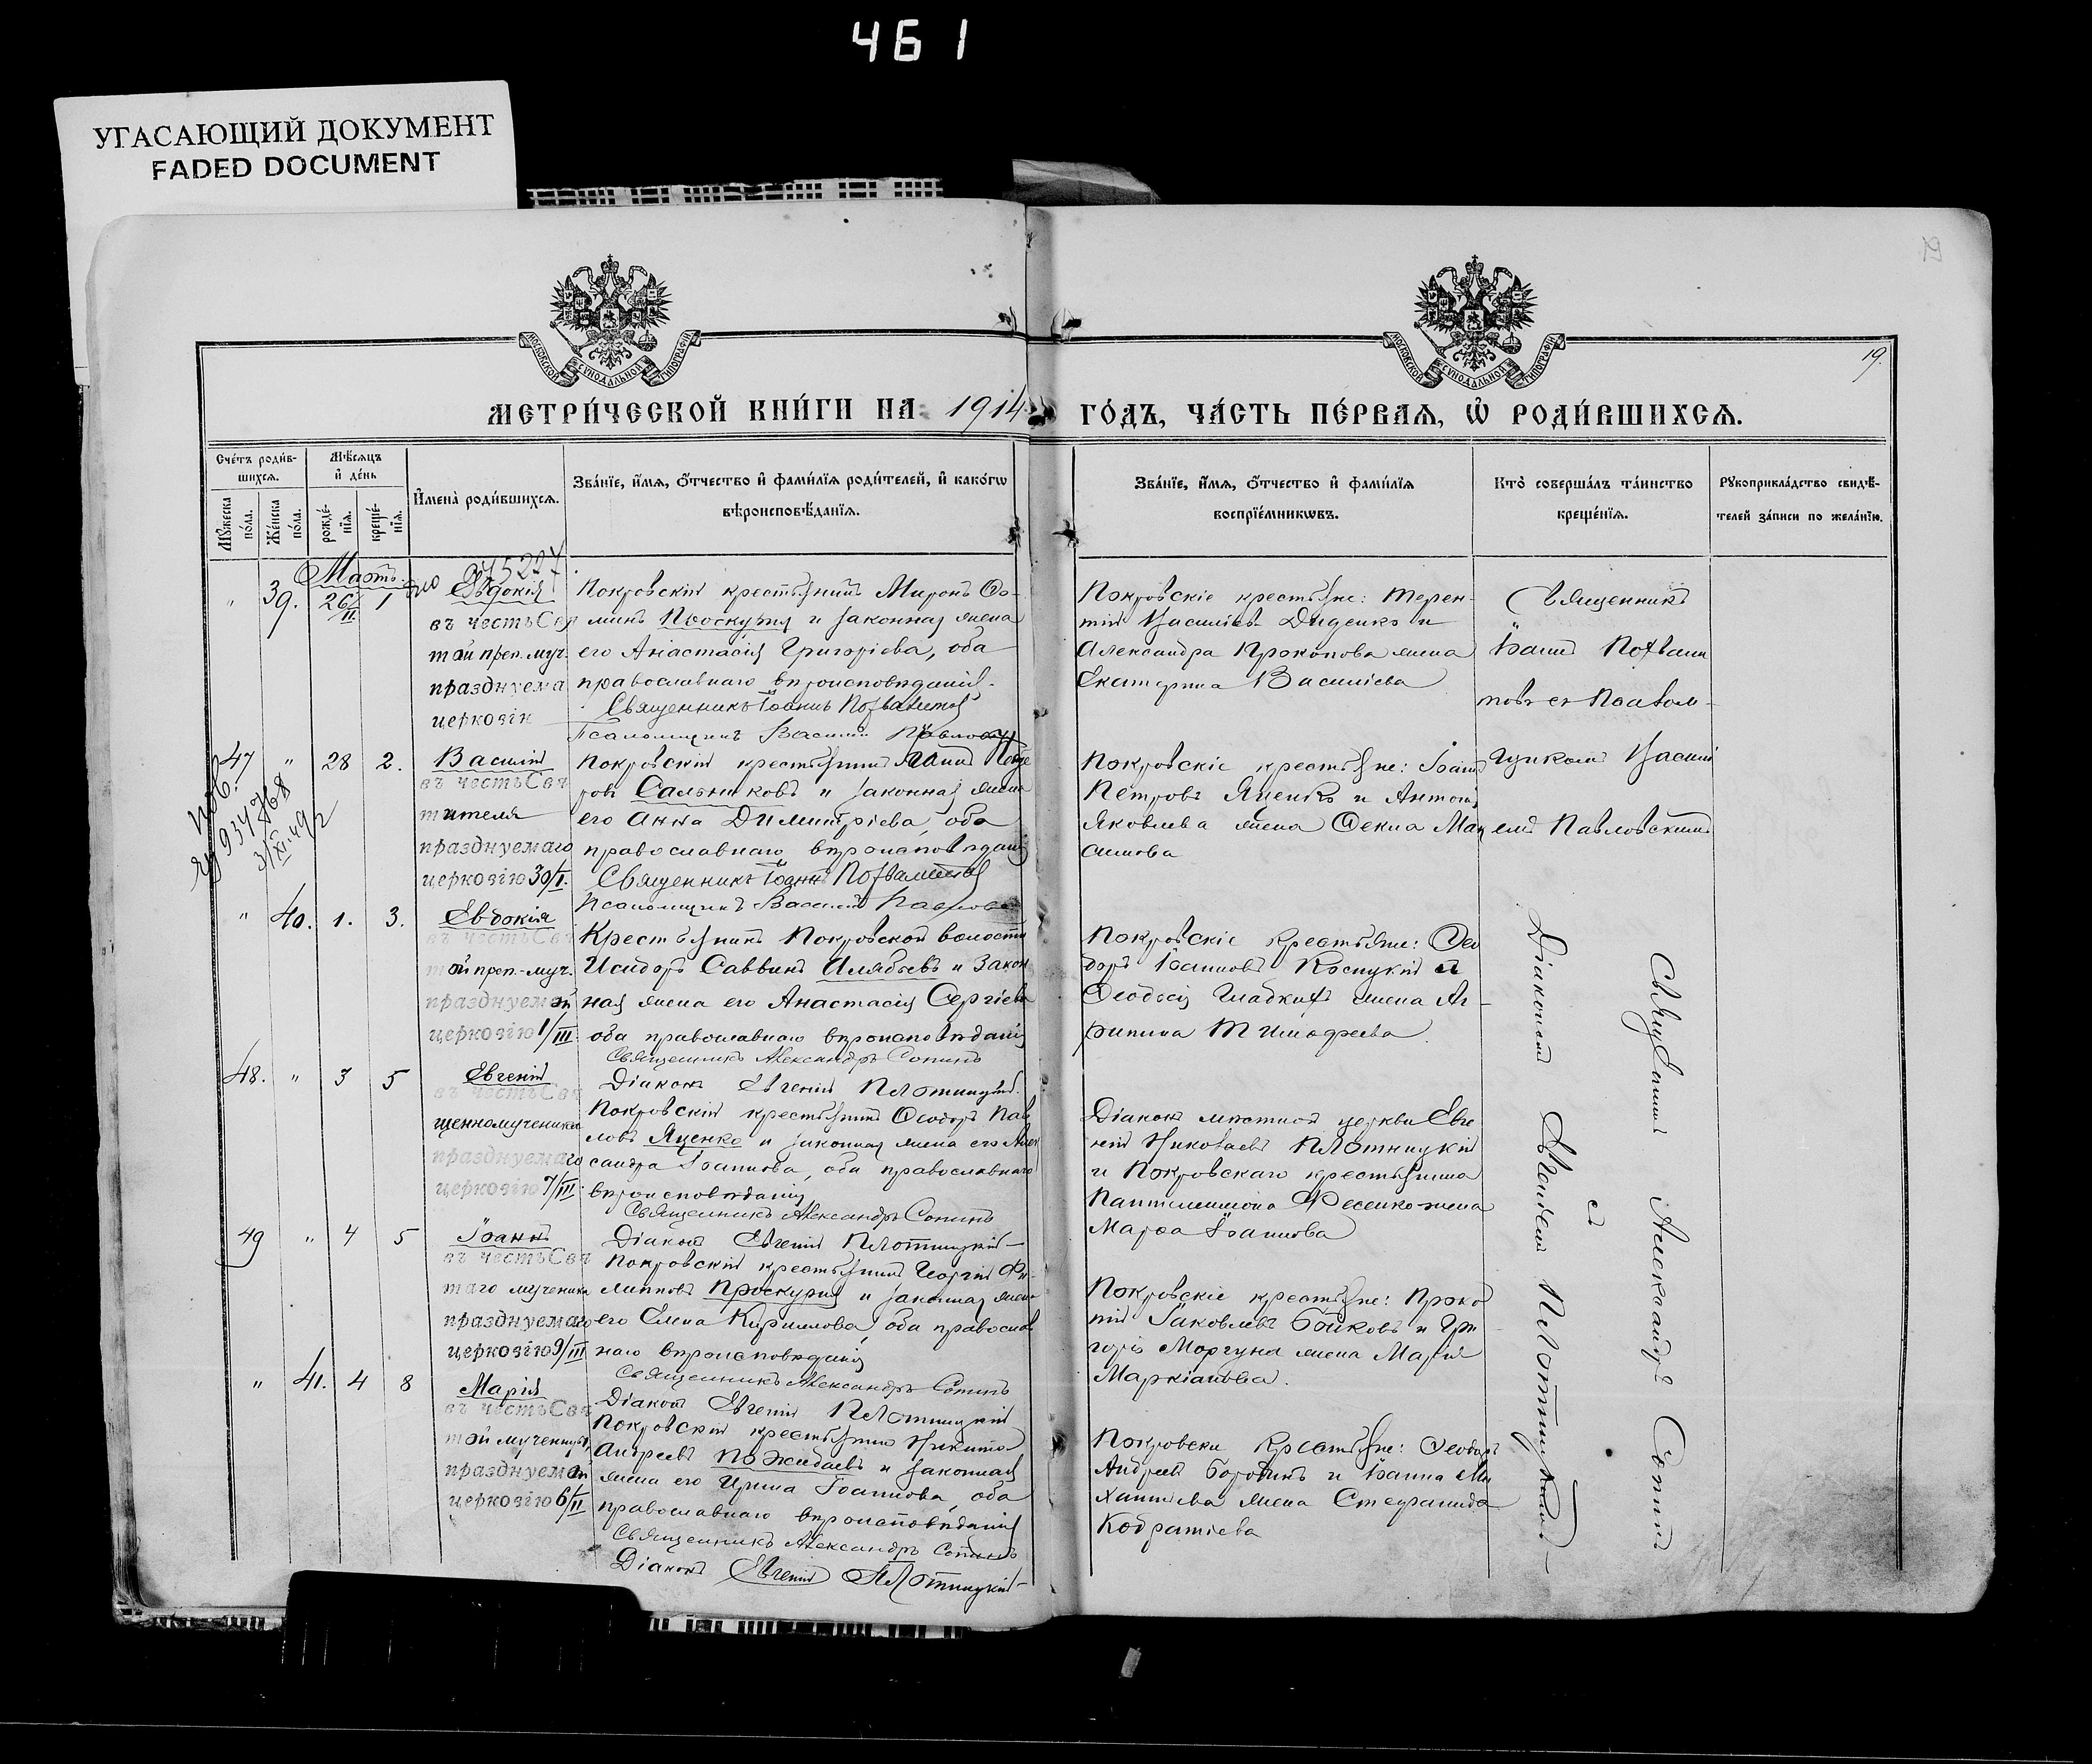 461
УГАСАЮЩИЙ ДОКУМЕНТ
FADED DOCUMENT
МОСКОВСКОЙ СѴНОДАЛЬНОЙ ТИПОГРАФІИ
МОСКОВСКОЙ СѴНОДАЛЬНОЙ ТИПОГРАФІИ
19.
МЕТРИ́ЧЕСКОЙ КНИ́ГИ НА 1914
ГО́ДЪ, ЧА́СТЬ ПЕ́РВАЯ, Ѡ РОДИ́ВШИХСЯ.
Сче́тъ роди́в-
шихся.
Мѣ́сяцъ
и де́нь
Мꙋ́жеска
по́ла.
Же́нска
по́ла.
рожде́-
нїя.
креще́-
нїя.
Имена̀ роди́вшихся.
Зва́нїе, и́мя, о́тчество и фами́лїя роди́телей, и како́гѡ
вѣроисповѣ́данїя.
Зва́нїе, и́мя, о́тчество и фами́лїя
воспрїе́мникѡвъ.
Кто̀ соверша́лъ та́инство
креще́нїя.
Рꙋкоприкла́дство свидѣ́-
телей за́писи по жела́нїю.
Мартъ
" 39. 26/II 1
Евдокія
въ честь Свя
той преп. муч.
празднуема
церковію
Покровскій крестьянинъ Миронъ Ѳо-
минъ Проскурня и законная жена
его Анастасія Григоріева, оба
православнаго вѣроисповѣданія.
Священникъ Іоаннъ Похвалитовъ
Псаломщикъ Василій Павловскій
Покровскіе крестьяне: Терен-
тій Василіевъ Диденко и
Александра Прокопова жена
Екатерина Василіева
Священникъ
Іоаннъ Похвали
товъ съ Псалом-
щикомъ Василі
емъ Павловскимъ
47 " 28 2.
Василій
въ честь Свя
тителя
празднуемаго
церковію 30/I.
Покровскій крестьянинъ
Сальниковъ и законная жена
его Анна Димитріева, оба
православнаго вѣроисповѣданія
Священникъ Іоаннъ Похвалитовъ
Псаломщикъ Василій Павловскій
Покровскіе крестьяне: Іоаннъ
Петровъ Яценко и Антонія
Яковлева жена Ѳекла Мак
симова
" 40. 1. 3.
Евдокія
въ честь Свя
той преп.-муч.
празднуемой
церковію 1/III
Крестьянинъ Покровской волости
Исидоръ Саввинъ Алябьевъ и закон
ная жена его Анастасія Сергіева
оба православнаго вѣроисповѣданія
Священникъ Александръ Сопинъ
Діаконъ Евгеній Плотницкій.
Покровскіе крестьяне: Ѳео
доръ Іоанновъ и
Ѳеодосія Гладкихъ жена Аг-
рипина Тимофеева.
48. " 3 5
Евгеній
въ честь Свя
щенномученика
празднуемаго
церковію 7/III.
Покровскій крестьянинъ Ѳеодоръ Пав
ловъ Яценко и законная жена его Алек
сандра Іоаннова, оба православнаго
вѣроисповѣданія
Священникъ Александръ Сопинъ
Діаконъ Евгеній Плотницкій-
Діаконъ мѣстной церкви Евге
ній Николаевъ Плотницкій
и Покровскаго крестьянина
Пантелеимона Фесенко жена
Марѳа Іоаннова
49 " 4 5
Іоаннъ
въ честь Свя
таго мученика
празднуемаго
церковію 9/III
Покровскій крестьянинъ Георгій Фи-
липповъ Проскурня и законная жена
его Елена Кириллова, оба православ
наго вѣроисповѣданія
Священникъ Александръ Сопинъ
Діаконъ Евгеній Плотницкій
Покровскіе крестьяне: Проко
пій Іаковлевъ Бойковъ и Гри
горія Моргуна жена Марія
Маркіанова.
" 41. 4 8
Марія
въ честь Свя
той мученицы,
празднуемой
церковію 6/II
Покровскій крестьянинъ Никита
Андреевъ Пожидаевъ и законная
жена его Ирина Іоаннова, оба
православнаго вѣроисповѣданія
Священникъ Александръ Сопинъ
Діаконъ Евгеній Плотницкій-
Покровскіе крестьяне: Ѳеодоръ
Андреевъ Бородинъ и Іоанна Ми
хаилева жена Стефанида
Кодратіева
Священникъ Александръ Сопинъ
съ
Діакономъ Евгеніемъ Плотницкимъ-